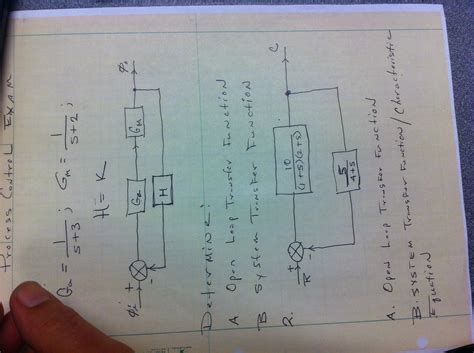 Process Control Exam
Ga = 1/(s+3) ; Gm = 1/(s+2) ;
H = K
φi + Ga Gm φo
- H
Determine:
A Open Loop Transfer Function
B System Transfer Function
2.
R + 10/((s+5)(s+5)) C
- 5/(s+5)
A. Open Loop Transfer Function
B. System Transfer Function/Characteristic
Equation